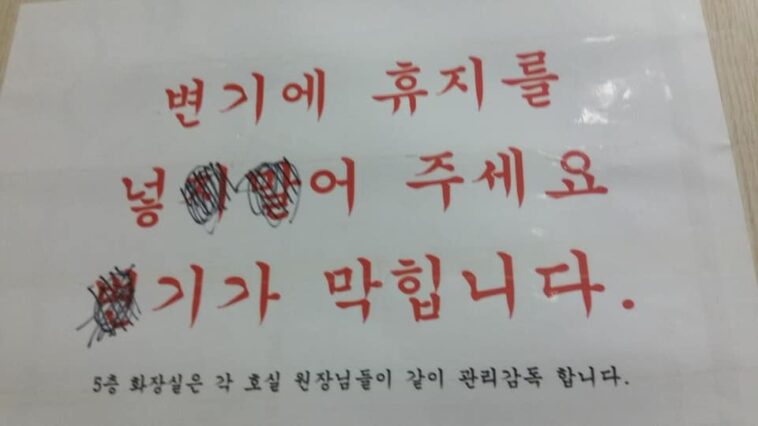 변기에 휴지를
넣어 주세요
기가 막힙니다.
5층 화장실은 각 호실 원장님들이 같이 관리감독 합니다.